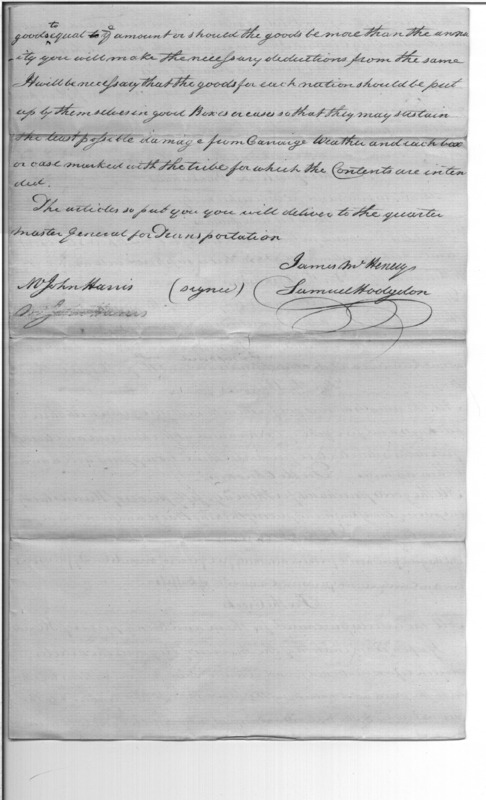 to
goods equal to ye amount or should the goods be more than the annu
-ity you will make the necessary deductions from the same
It will be necessary that the goods for each nation should be put
up by themselves in good Boxes or cases so that they may sustain
the least possible damage from Carraige Weather and each box
or case marked with the tribe for which the Contents are inten
ded.
The articles so put you you will deliver to the quarter
master General for Transportation
James McHenry
Mr John Harris (signed) Samuel Hodgdon
Mr John Harris